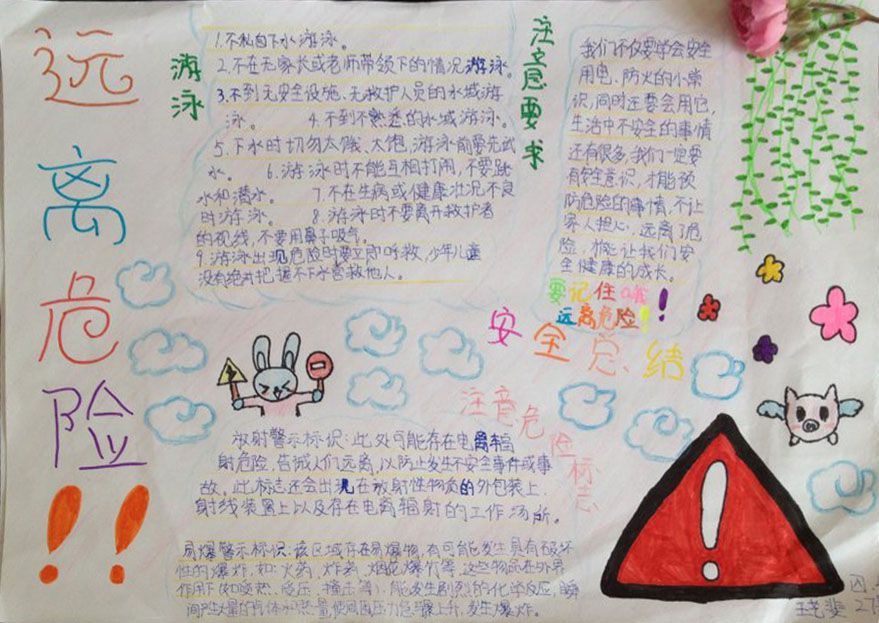 远
离
危
险
!!
游
泳
注
意
要
求
1.不私自下水游泳。
2.不在无家长或老师带领下的情况游泳。
3.不到无安全设施、无救护人员的水域游
泳。 4.不到不熟悉的水域游泳。
5.下水时切勿太饿、太饱,游泳前要先试
水。 6.游泳时不能互相打闹,不要跳
水和潜水。 7.不在生病或健康壮况不良
时游泳。 8.游泳时不要离开救护者
的视线,不要用鼻子吸气。
9.游泳出现危险时要立即呼救,少年儿童
没有绝对把握不下水营救他人。
我们不仅要学会安全
用电、防火的小常
识,同时还要会用它,
生活中不安全的事情
还有很多,我们一定要
有安全意识,才能预
防危险的事情,不让
家人担心,远离了危
险,才能让我们安
全健康的成长。
要记住哦!
远离危险!!
安全总结
注意危险标志
放射警示标识:此处可能存在电离辐
射危险,告诫人们远离,以防止发生不安全事件或事
故。此标志还会出现在放射性物质的外包装上、
射线装置上以及存在电离辐射的工作场所。
易爆警示标识:该区域存在易爆物,有可能发生具有破坏
性的爆炸,如:火药、炸药、烟花爆竹等,这些物品在外界
作用下(如受热、受压、撞击等),能发生剧烈的化学反应,瞬
间产生大量的气体和热量使周围压力急瀑上升,发生爆炸。
!